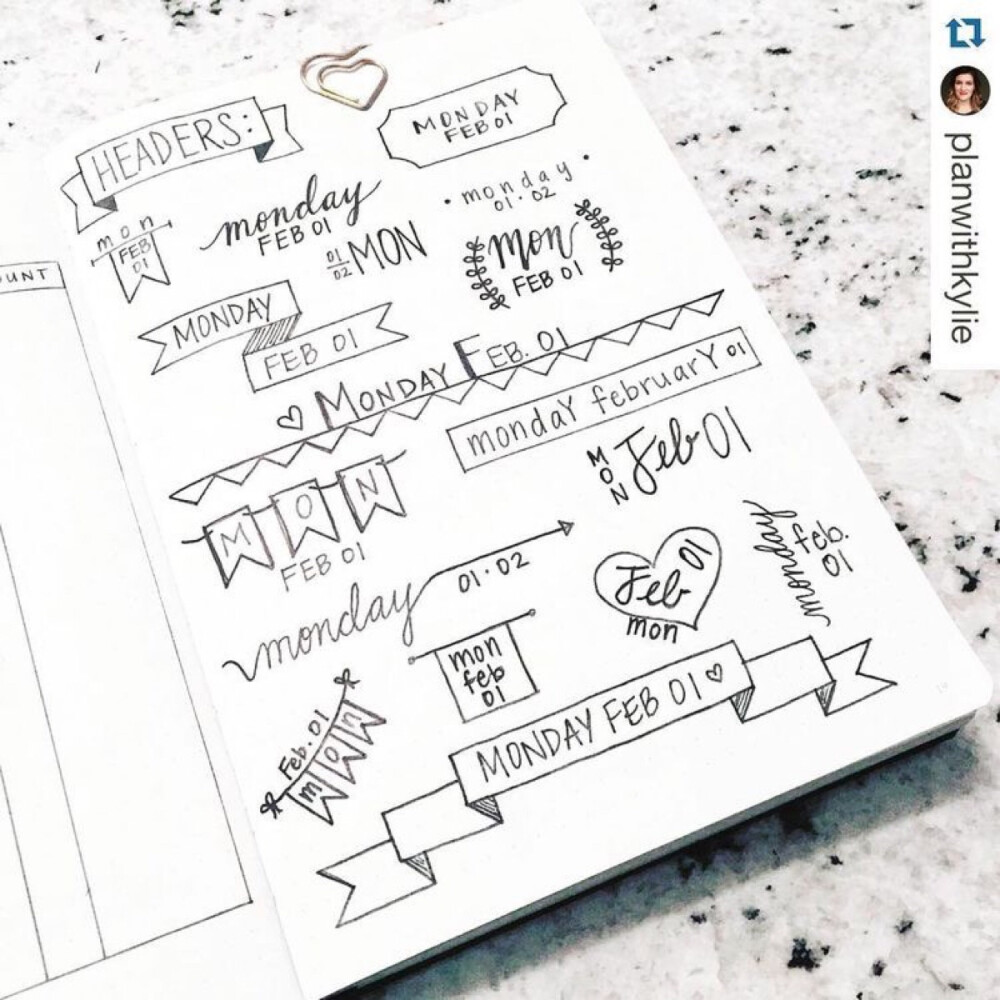 HEADERS:
MONDAY
FEB 01
mon
FEB
01
monday
FEB 01
01
02
MON
• monday •
01 · 02
mon
FEB 01
MONDAY
FEB 01
MONDAY FEB. 01
mondaY februarY 01
MON
Feb 01
MON
FEB 01
monday
01 · 02
Feb 01
mon
monday
feb.
01
mon
feb
01
Feb. 01
mon
MONDAY FEB 01
OUNT
planwithkylie